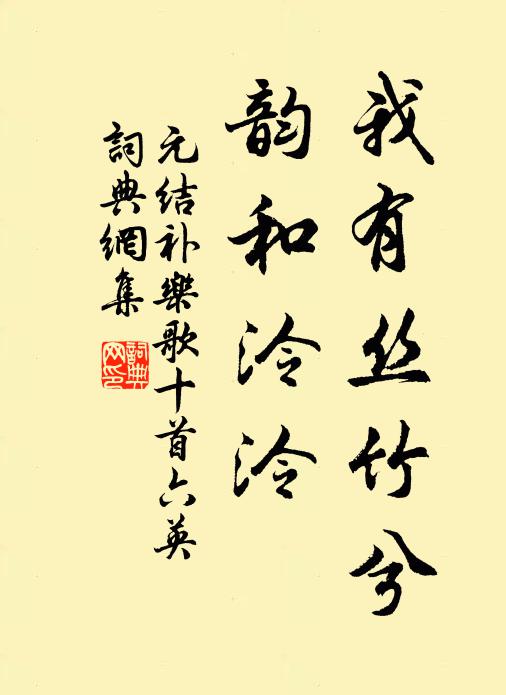 我有丝竹兮
韵和泠泠
元结补樂歌十首六英
詞典網集
詞典网印